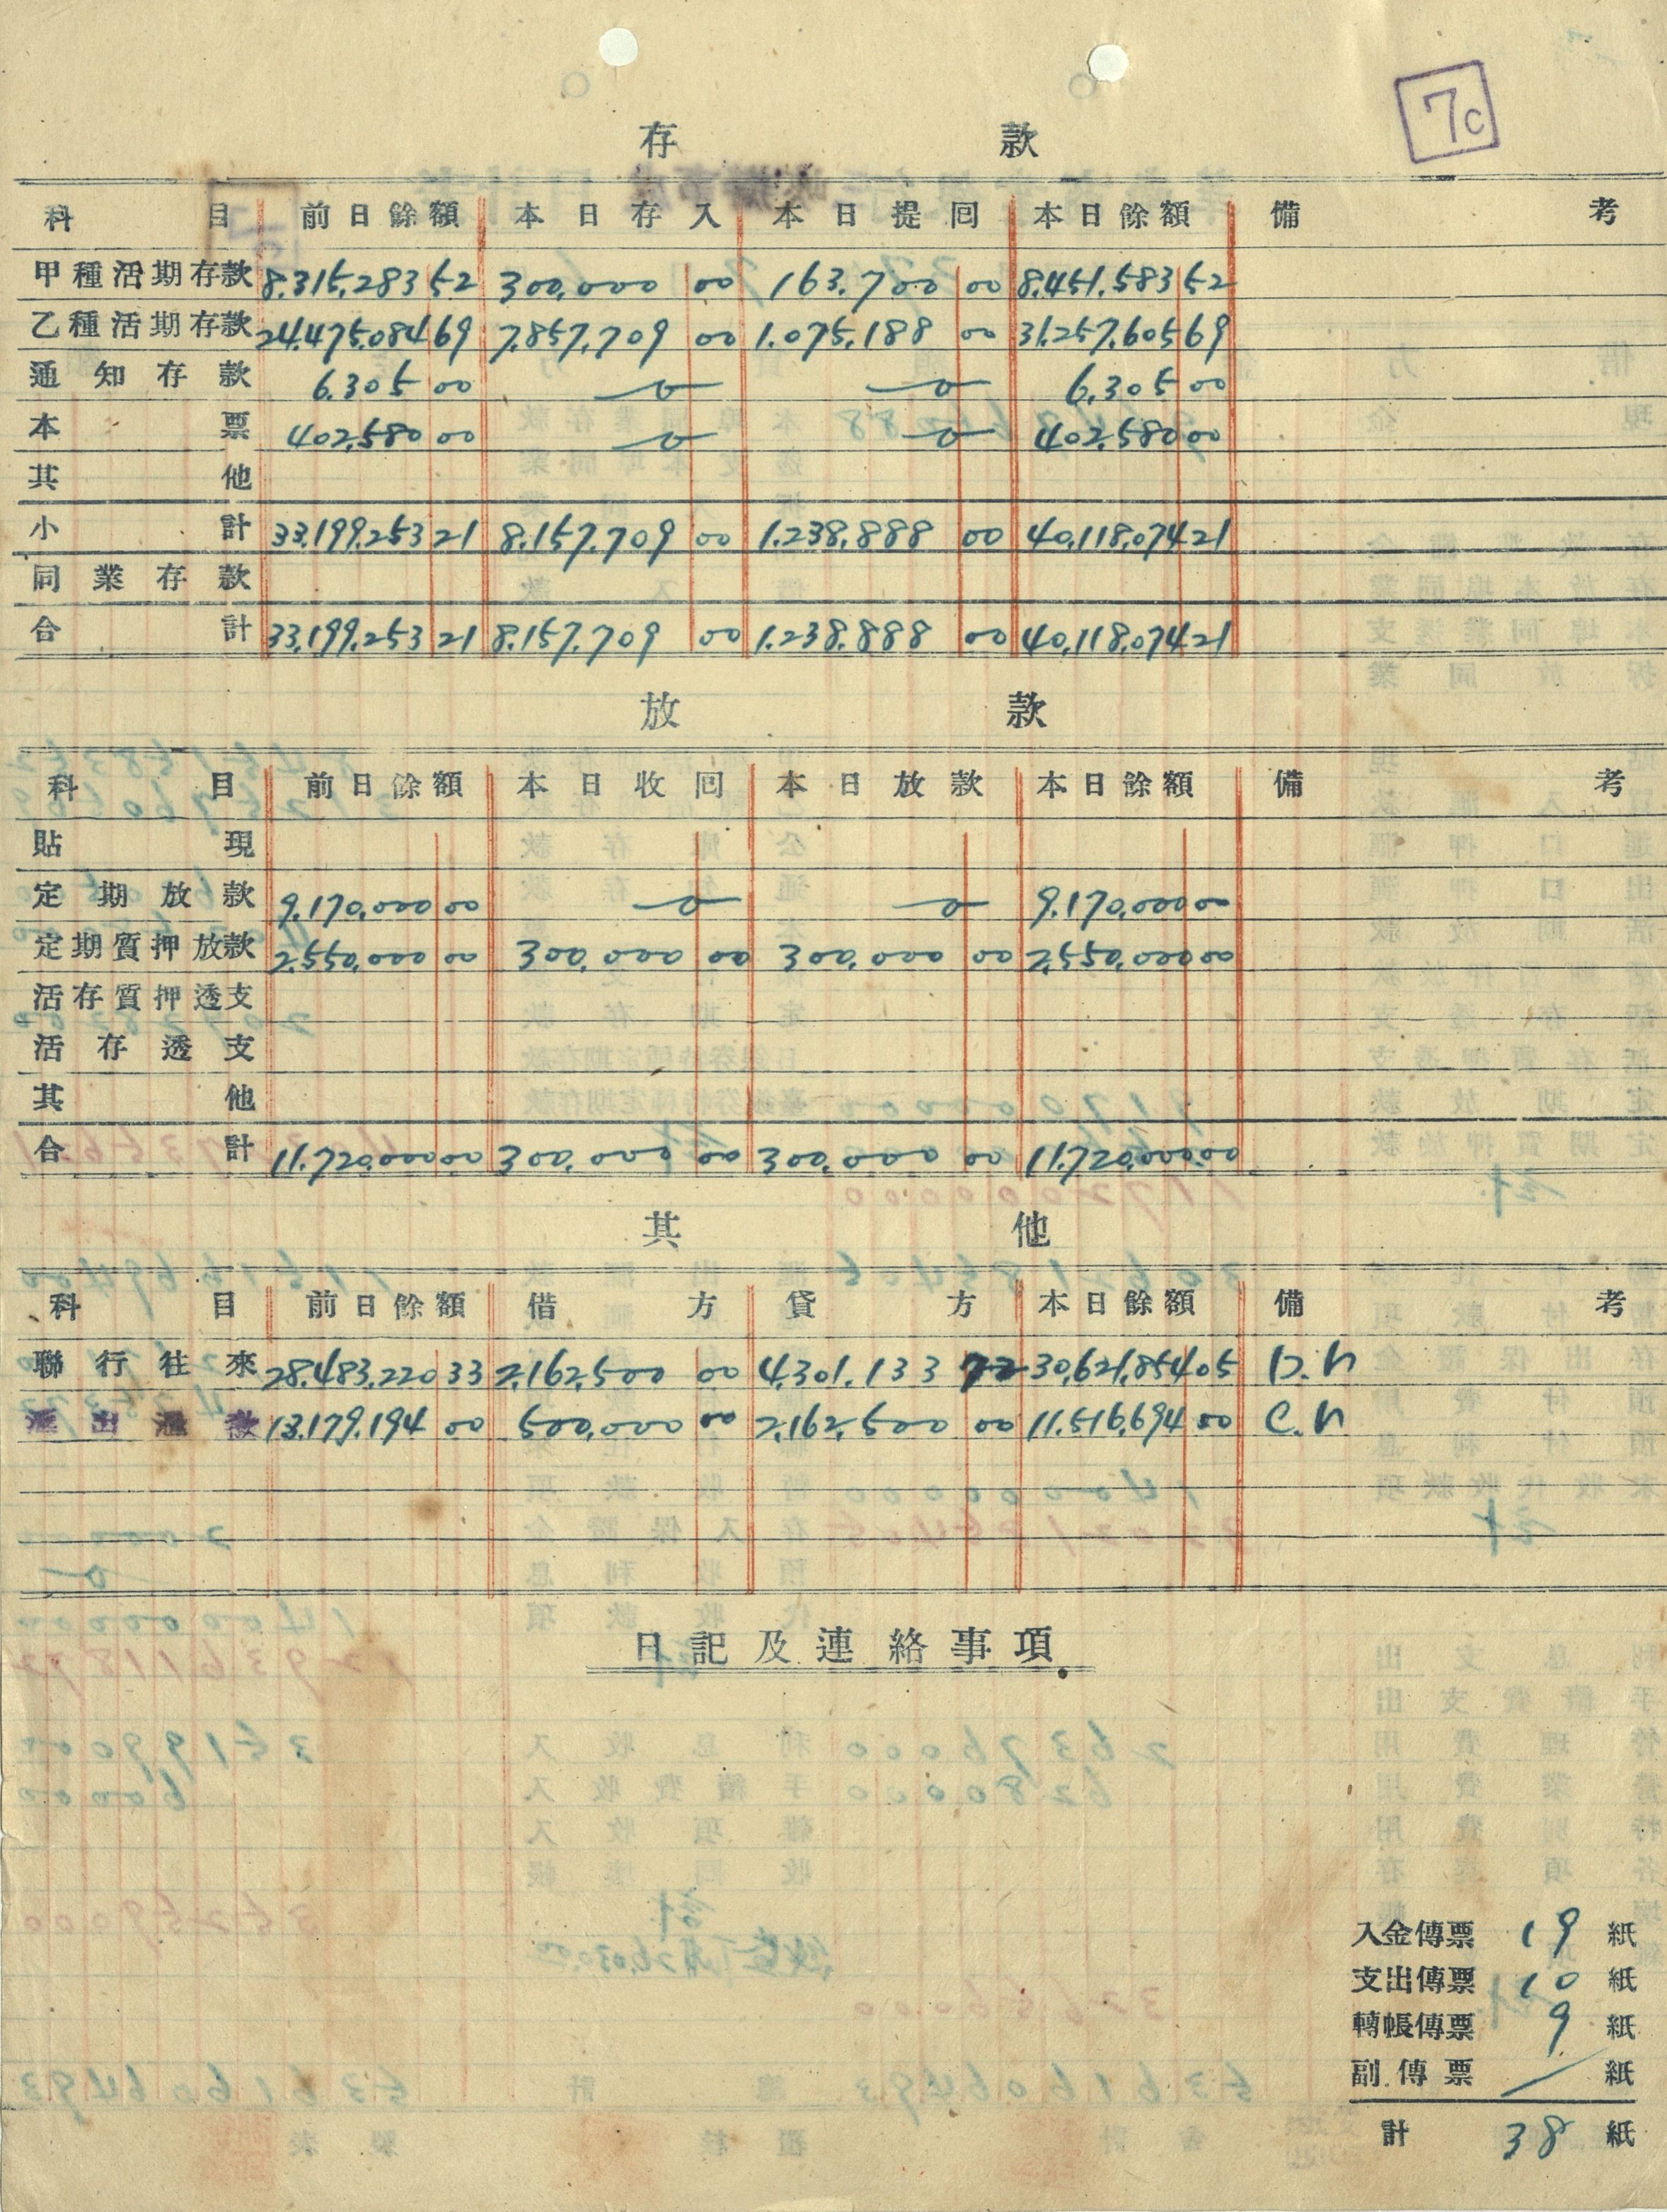 7c
存款
科目 前日餘額 本日存入 本日提回 本日餘額 備考
甲種活期存款 8.315.283 52 300.000 00 163.700 00 8.451.583 52
乙種活期存款 24.475.084 69 7.857.709 00 1.075.188 00 31.257.605 69
通知存款 6.305 00 0 0 6.305 00
本票 402.580 00 0 0 402.580 00
其他
小計 33.199.253 21 8.157.709 00 1.238.888 00 40.118.074 21
同業存款
合計 33.199.253 21 8.157.709 00 1.238.888 00 40.118.074 21
放款
科目 前日餘額 本日收回 本日放款 本日餘額 備考
貼現
定期放款 9.170.000 00 0 0 9.170.000 00
定期質押放款 2.550.000 00 300.000 00 300.000 00 2.550.000 00
活存質押透支
活存透支
其他
合計 11.720.000 00 300.000 00 300.000 00 11.720.000 00
其他
科目 前日餘額 借方 貸方 本日餘額 備考
聯行往來 28.483.220 33 2.162.500 00 4.301.133 72 30.621.854 05 D.N
匯出匯款 13.179.194 00 500.000 00 2.162.500 00 11.516.694 00 C.N
日記及連絡事項
入金傳票 19 紙
支出傳票 10 紙
轉帳傳票 9 紙
副傳票 / 紙
計 38 紙